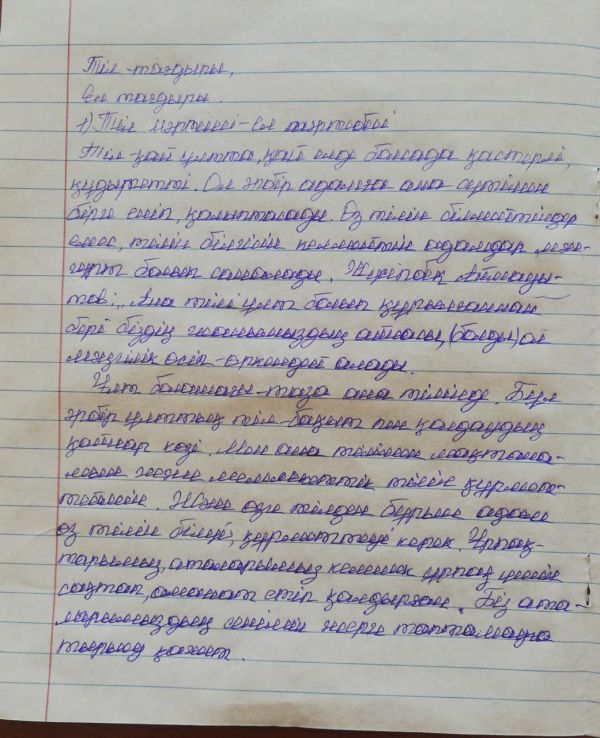 Тіл-тағдыры,
Ел тағдыры.
1) Тіл мәртебесі-ел мәртебесі
Тіл-қай ұлтта, қай елде болсада қастерлі,
құдыретті. Ол әрбір адамға ана сүтімен
бірге еніп, қалыптасады. Өз тілін білмейтіндер
емес, тілін білгісі келмейтін адамдар мәң-
гүрт болып саналады. Жүсіпбек Аймауы-
тов: "Ана тілі ұлт болып құрылғаннан
бері біздің жанымыздың айнасы, (болды) ол
мәңгілік өсіп-өркендей алады.
Ұлт болашағы-таза ана тілінде. Бұл
әрбір ұлттың тіл-бақыт пен қолдаудың
қайнар көзі. Мен ана тілімен мақтана-
мын және мемлекеттік тілін құрмет-
теймін. Және өзге тілден бұрын адам
өз тілін біліп, құрметтеу керек. Ұрпақ-
тарымыз, аталарымыз келешек ұрпақ үшін
сақтап, аманат етіп қалдырған. Біз ата-
ларымыздың сенімін жерге таптамауға
тырысу қажет.